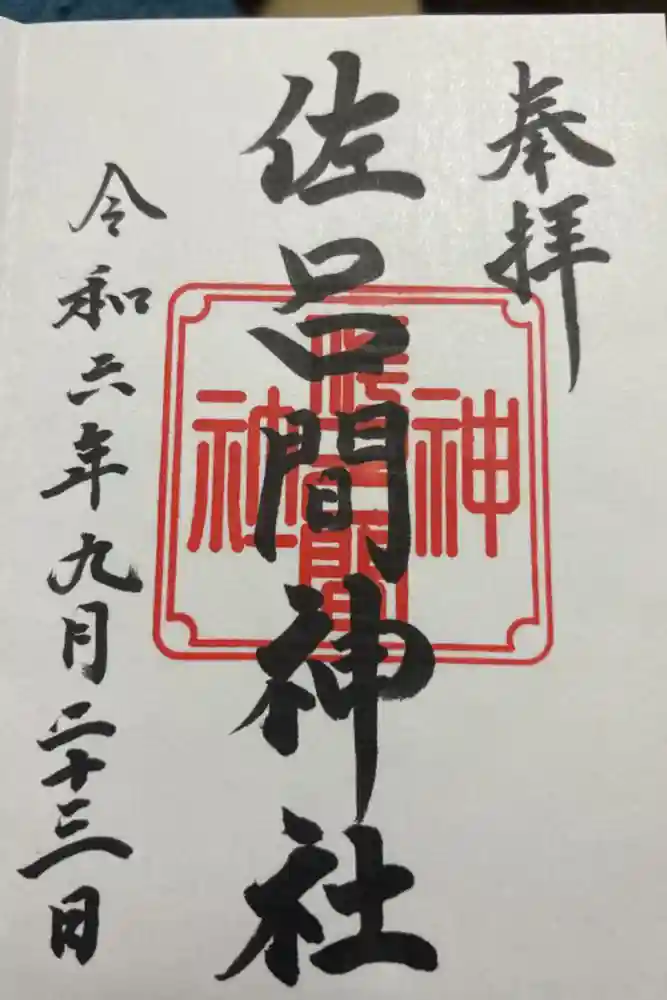 奉拝
佐呂間神社
神
社
令和六年九月二十三日